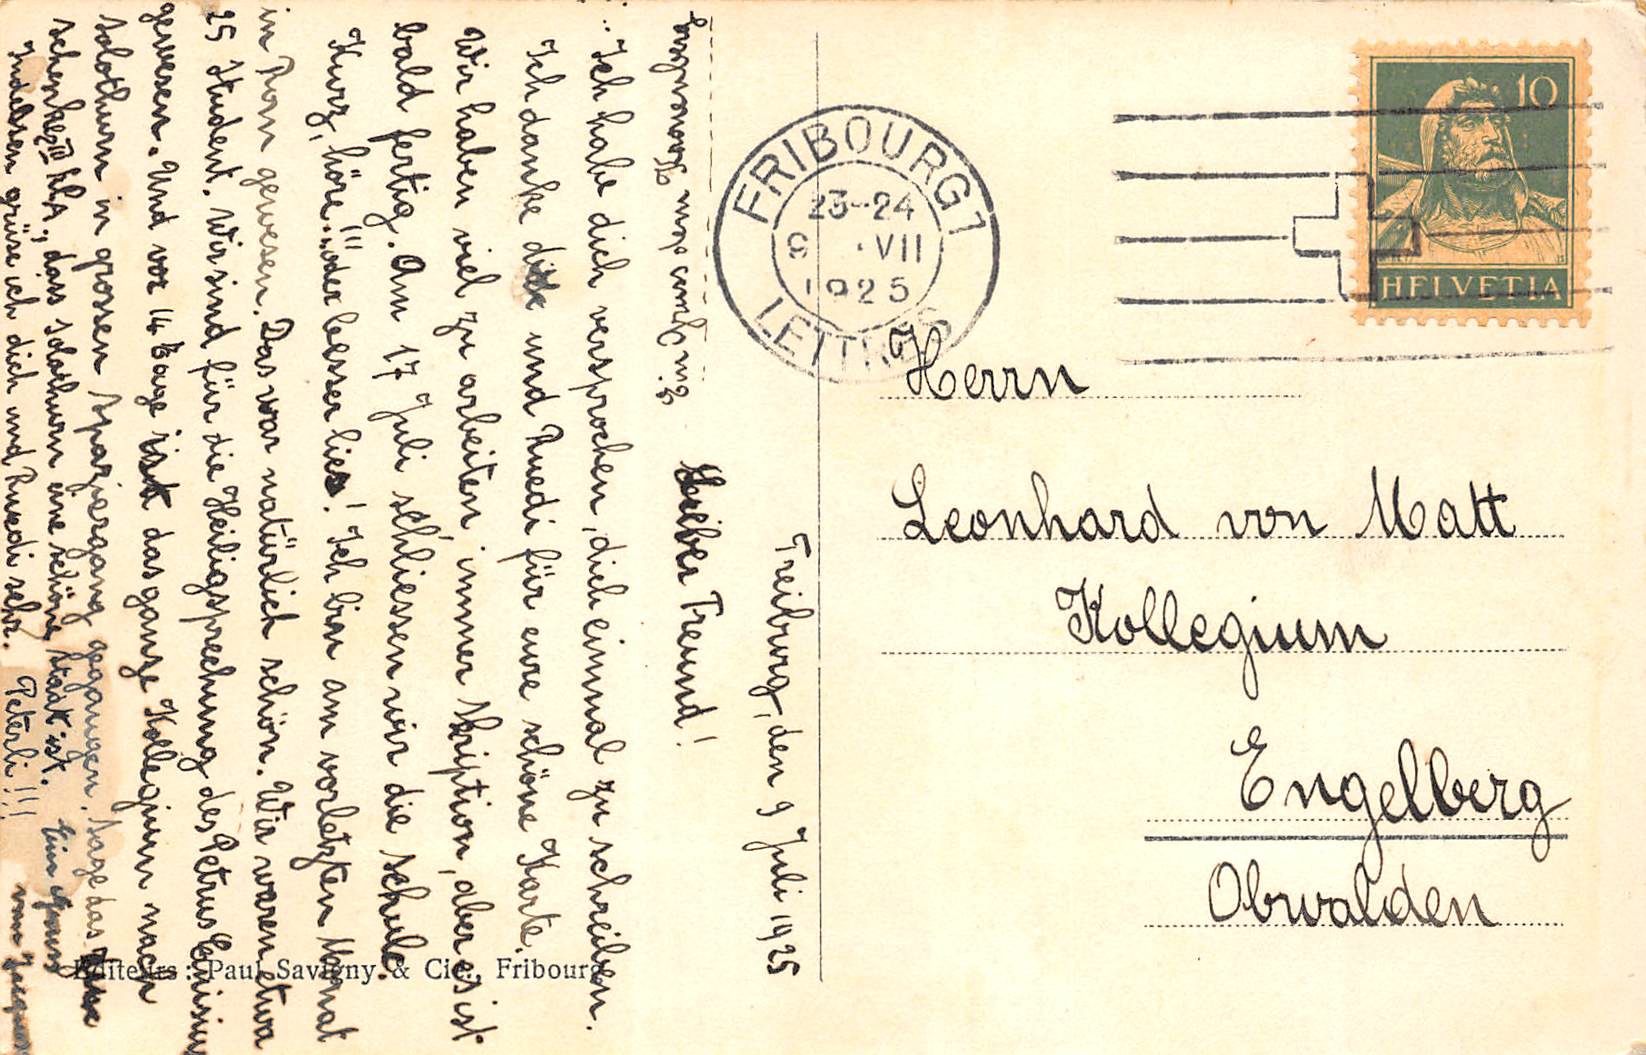 Freiburg, den 9 Juli 1925
Lieber Freund!
Ich habe dich versprochen, dich einmal zu schreiben.
Ich danke dir und Ruedi für eure schöne Karte.
Wir haben viel zu arbeiten, immer Skription, aber es ist
bald fertig. Am 17 Juli schliessen wir die Schule.
Kurz, höre!!! oder besser lies! Ich bin am vorletzten Monat
in Rom gewesen. Das war natürlich schön. Wir waren etwa
25 Student. Wir sind für die Heiligsprechung des Petrus Canisius
gewesen. Und vor 14 Tage ist das ganze Kollegium nach
Solothurn in grossen Spaziergang gegangen. Sage das
Schenker III kl A, dass Solothurn eine schöne Stadt ist.
Indessen grüse ich dich und Ruedi sehr. Peterli!!!
Ein Gruss
von Jacques
Ein Gruss vom
FRIBOURG 1
23-24
9 . VII
1925
LETTRES
10
HELVETIA
Herrn
Leonhard von Matt
Kollegium
Engelberg
Obwalden
Editeurs: Paul Savigny & Cie., Fribourg